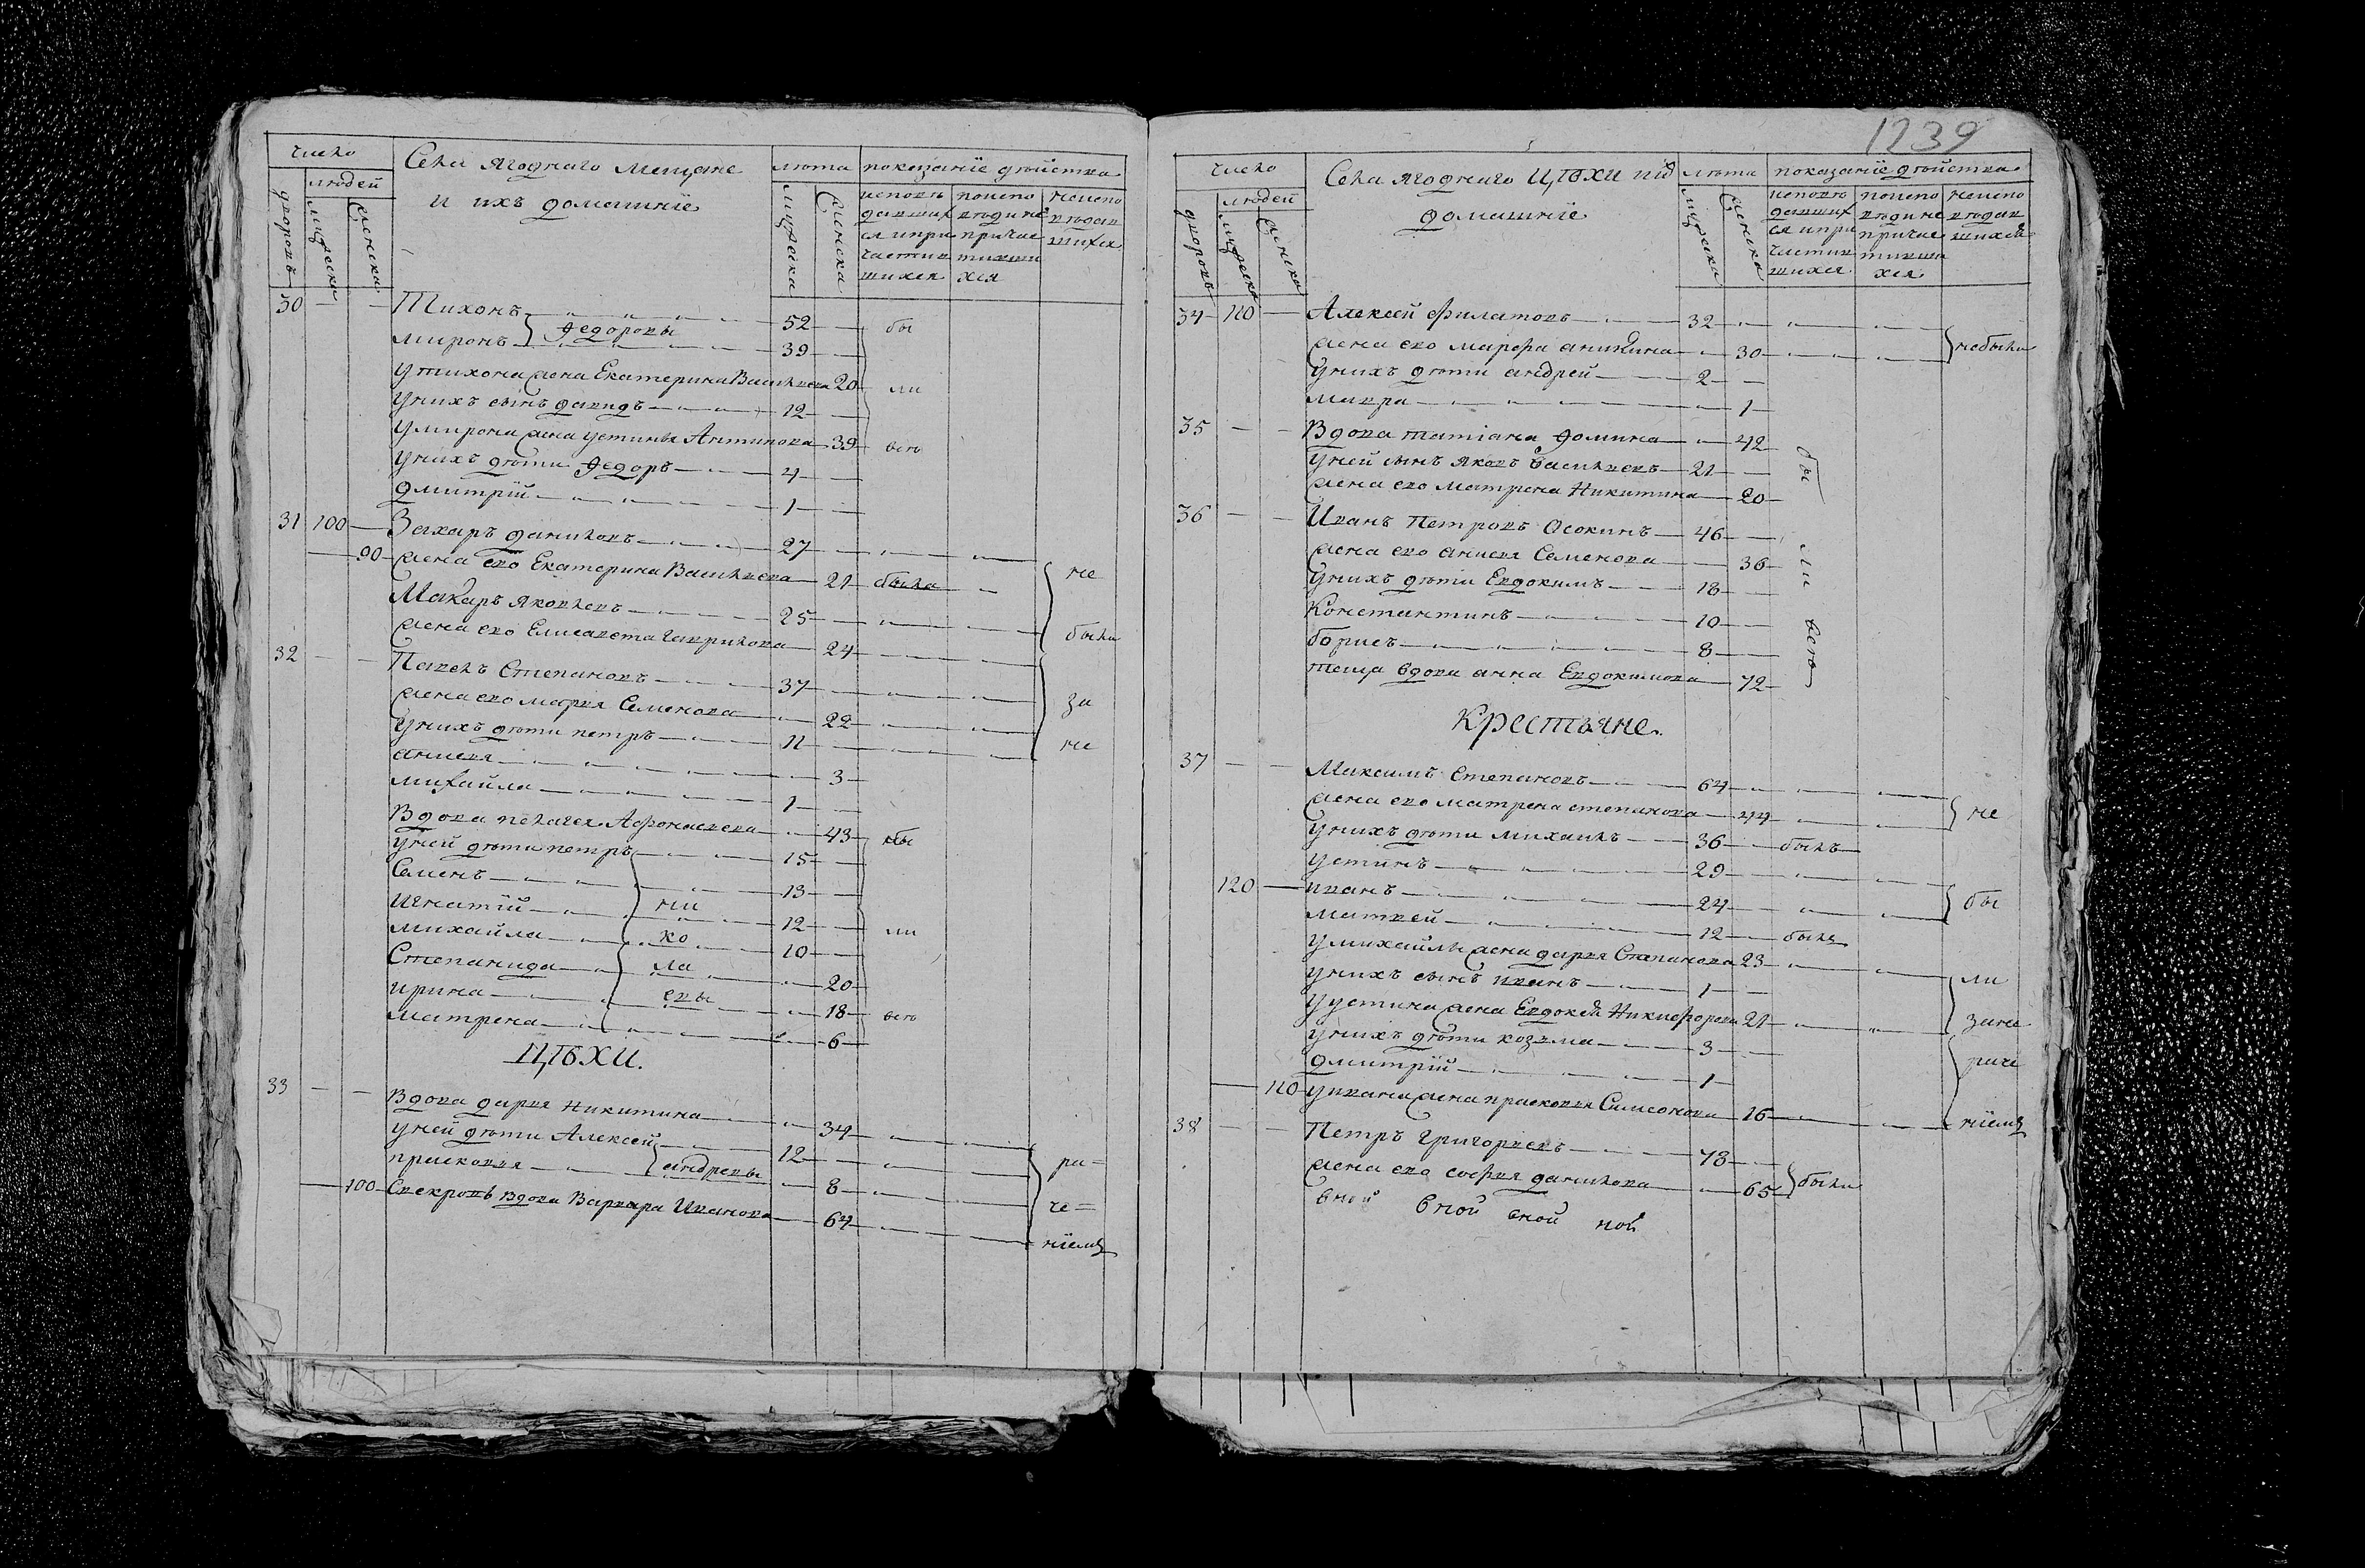 число
людей
дворовъ
мужеска
женска
Села Ягоднаго Мещане
и ихъ домашнїе
лѣта
мужеска
женска
показанїе дѣйства
исповѣ
давших
ся и при
частив
шихся
поиспо
вѣди не
причас
тивши
хся
неиспо
вѣдав
шихся
30 — — Тихонъ — 52 — бы
миронъ } Федоровы — 39 —
у тихона жена Екатерина Васильева 20 ли
у нихъ сынъ давидъ — 12 —
у мирона жена устинья Антипова — 39 всѣ
у нихъ дѣти Федоръ — 4 —
дмитрїй — 1 —
31 100 — Захаръ даниловъ — 27 —
— 90 — жена ево Екатерина Васильева — 21 была — не
Макаръ Яковлевъ — 25 —
жена ево Елисавета Гаврилова — 24 — были
32 — — Павелъ Степановъ — 37 —
жена ево марья Семенова — 22 — за
у нихъ дѣти петръ — 11 — не
анисья — 3 —
михайла — 1 —
Вдова пелагея Афонасьева — 43 — бы
у ней дѣти петръ — 15 —
Семенъ — 13 —
игнатїй — ни — 12 — ли
михайла — ко — 10 —
Степанида — ла — 20 —
ирина — евы — 18 — всѣ
матрена — 6 —
ЦѢХИ.
33 — — Вдова дарья никитина — 34 —
у ней дѣти Алексей — 12 — ра=
прасковья — } андревы — 8 — че=
— 100 — Свекровь вдова Варвара Иванова — 64 — нїемъ
1239
число
людей
дворовъ
мужеска
женска
Села Ягоднаго ЦѢХИ и их
домашнїе
лѣта
мужеска
женска
показанїе дѣйства
исповѣ
давших
ся и при
частив
шихся
поиспо
вѣди не
причас
тивши
хся
неиспо
вѣдав
шихся
34 — 110 — Алексей Филатовъ — 32 —
жена ево марфа аникина — 30 — небыли
у нихъ дѣти андрей — 2 —
мавра — 1 —
35 — — Вдова татїана Фомина — 42 — бы
у ней сынъ яковъ васильевъ — 21 —
жена ево матрена Никитина — 20 —
36 — — Иванъ Петровъ Осокинъ — 46 —
жена ево анисья Семенова — 36 — ли
у нихъ дѣти Евдокимъ — 18 —
Константинъ — 10 —
борисъ — 8 — всѣ
теща вдова анна Евдокимова — 72 —
Крестьяне.
37 — — Максимъ Степановъ — 64 —
жена ево матрена степанова — 44 — не
у нихъ дѣти михаилъ — 36 — былъ
устинъ — 29 —
120 — иванъ — 24 — бы
матвей — 12 — былъ
у михайлы жена дарья Степанова 23 — ли
у нихъ сынъ иванъ — 1 —
у устина жена Евдокея Никифорова 21 — зане
у нихъ дѣти козьма — 3 —
дмитрїй — 1 — раче
— 110 у ивана жена прасковья Симеонова — 16 — нїемъ
38 — — Петръ Григорьевъ — 78 —
жена ево софья данилова — 65 } были
вной вной вной ной